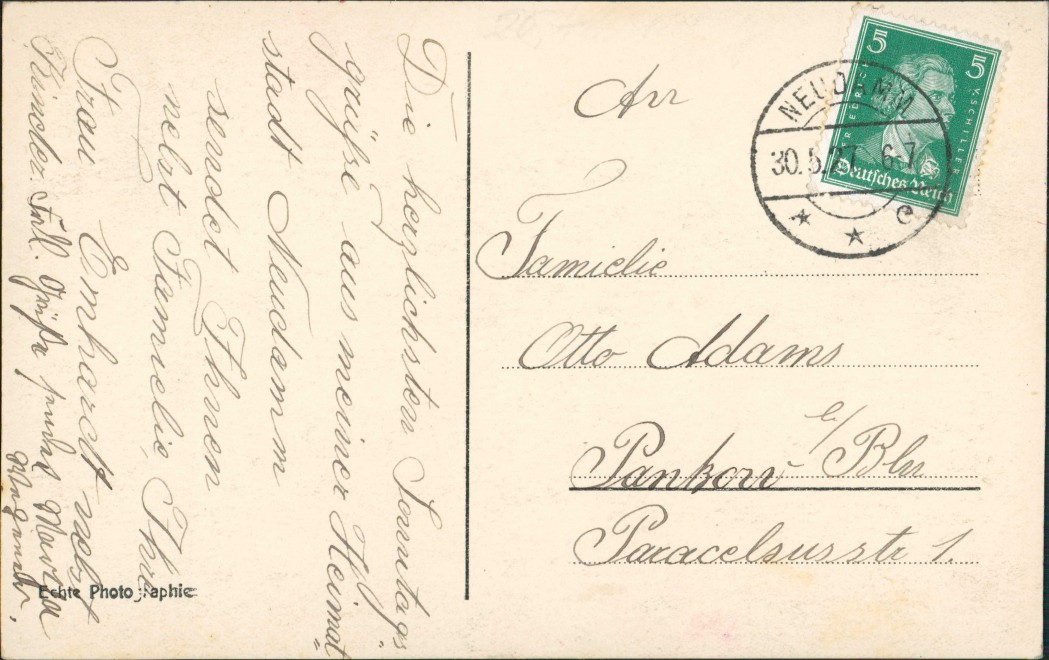 Die herzlichsten Sonntags-
grüße aus meiner Heimat-
stadt Neudamm
sendet Ihnen
nebst Familie, Ihre
Frau Emhardt nebst
Kinder. Frl. Grüße sendet Martha
An
Familie
Otto Adams
Pankow b/Bln
Paracelsusstr 1.
NEUDAMM
30.5.27. 6-7
* * c
5 5
FRIEDRICH V. SCHILLER
Deutsches Reich
Echte Photographie